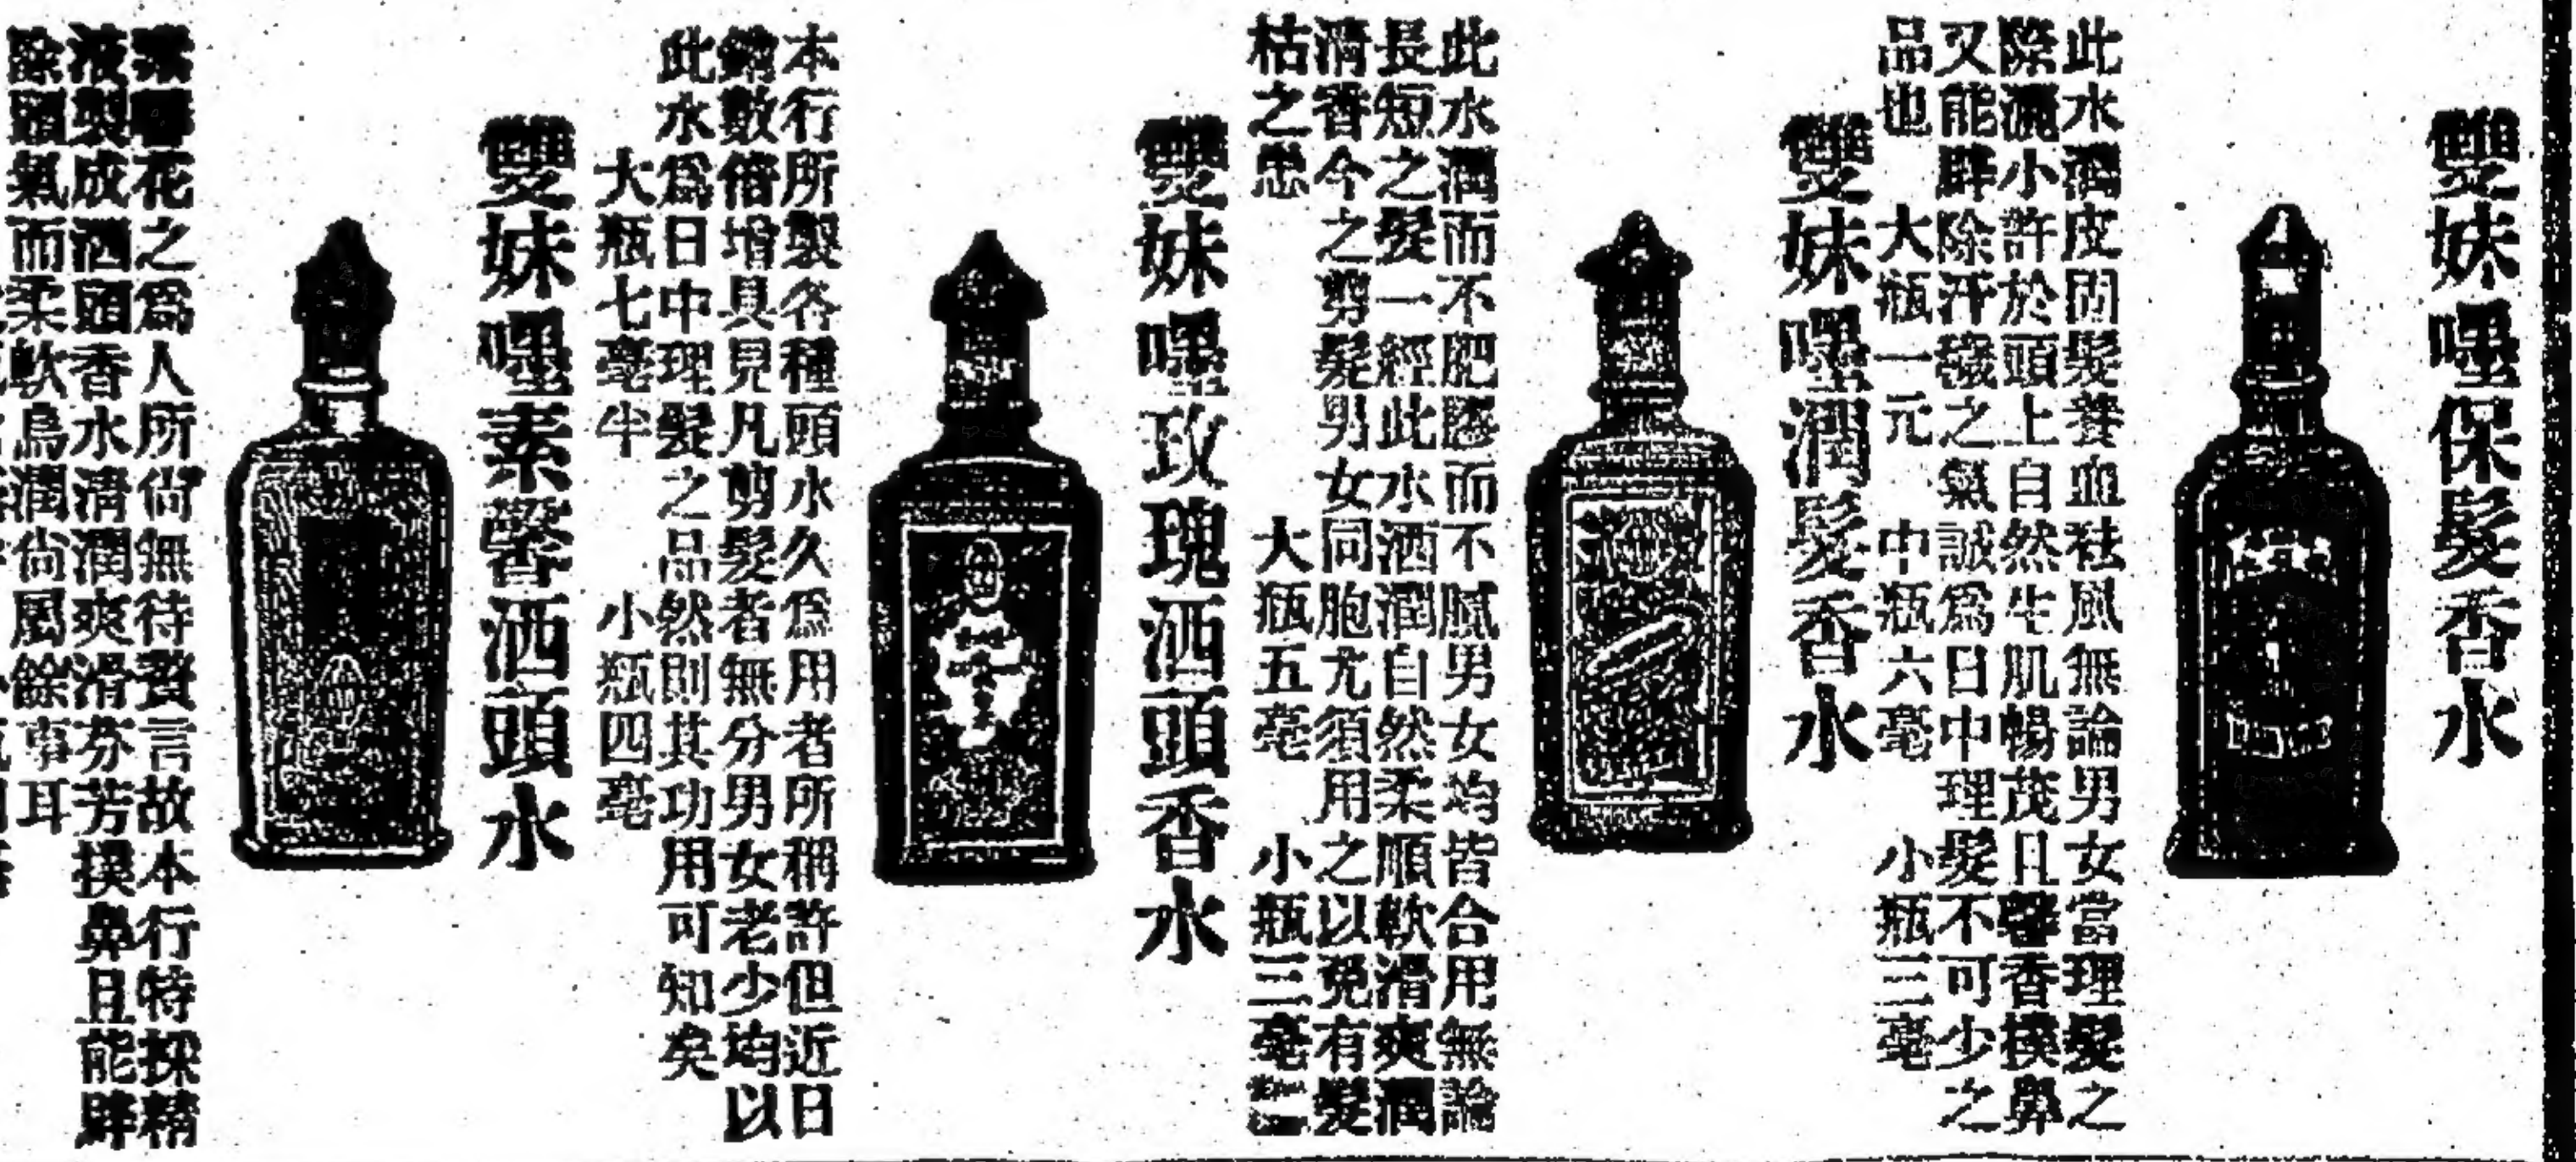 雙妹嚜保髮香水
此水潤皮固髮養血祛風無論男女當理髮之
際洒小許於頭上自然生肌暢茂且馨香撲鼻
又能辟除汗穢之氣誠爲日中理髮不可少之
品也 大瓶一元 中瓶六毫 小瓶三毫
雙妹嚜潤髮香水
此水潤而不肥膩而不膩男女均皆合用無論
長短之髮一經此水洒潤自然柔順軟滑爽潤
清香今之剪髮男女同胞尤須用之以免有髮
枯之患 大瓶五毫 小瓶三毫
雙妹嚜玫瑰洒頭香水
本行所製各種頭水久爲用者所稱許但近日
銷數倍增具見凡剪髮者無分男女老少均以
此水爲日中理髮之品然則其功用可知矣
大瓶七毫半 小瓶四毫
雙妹嚜素馨洒頭水
素馨花之爲人所尙無待贅言故本行特採精
液製成洒頭香水清潤爽滑芬芳撲鼻且能辟
除穢氣而柔軟烏潤尙屬餘事耳